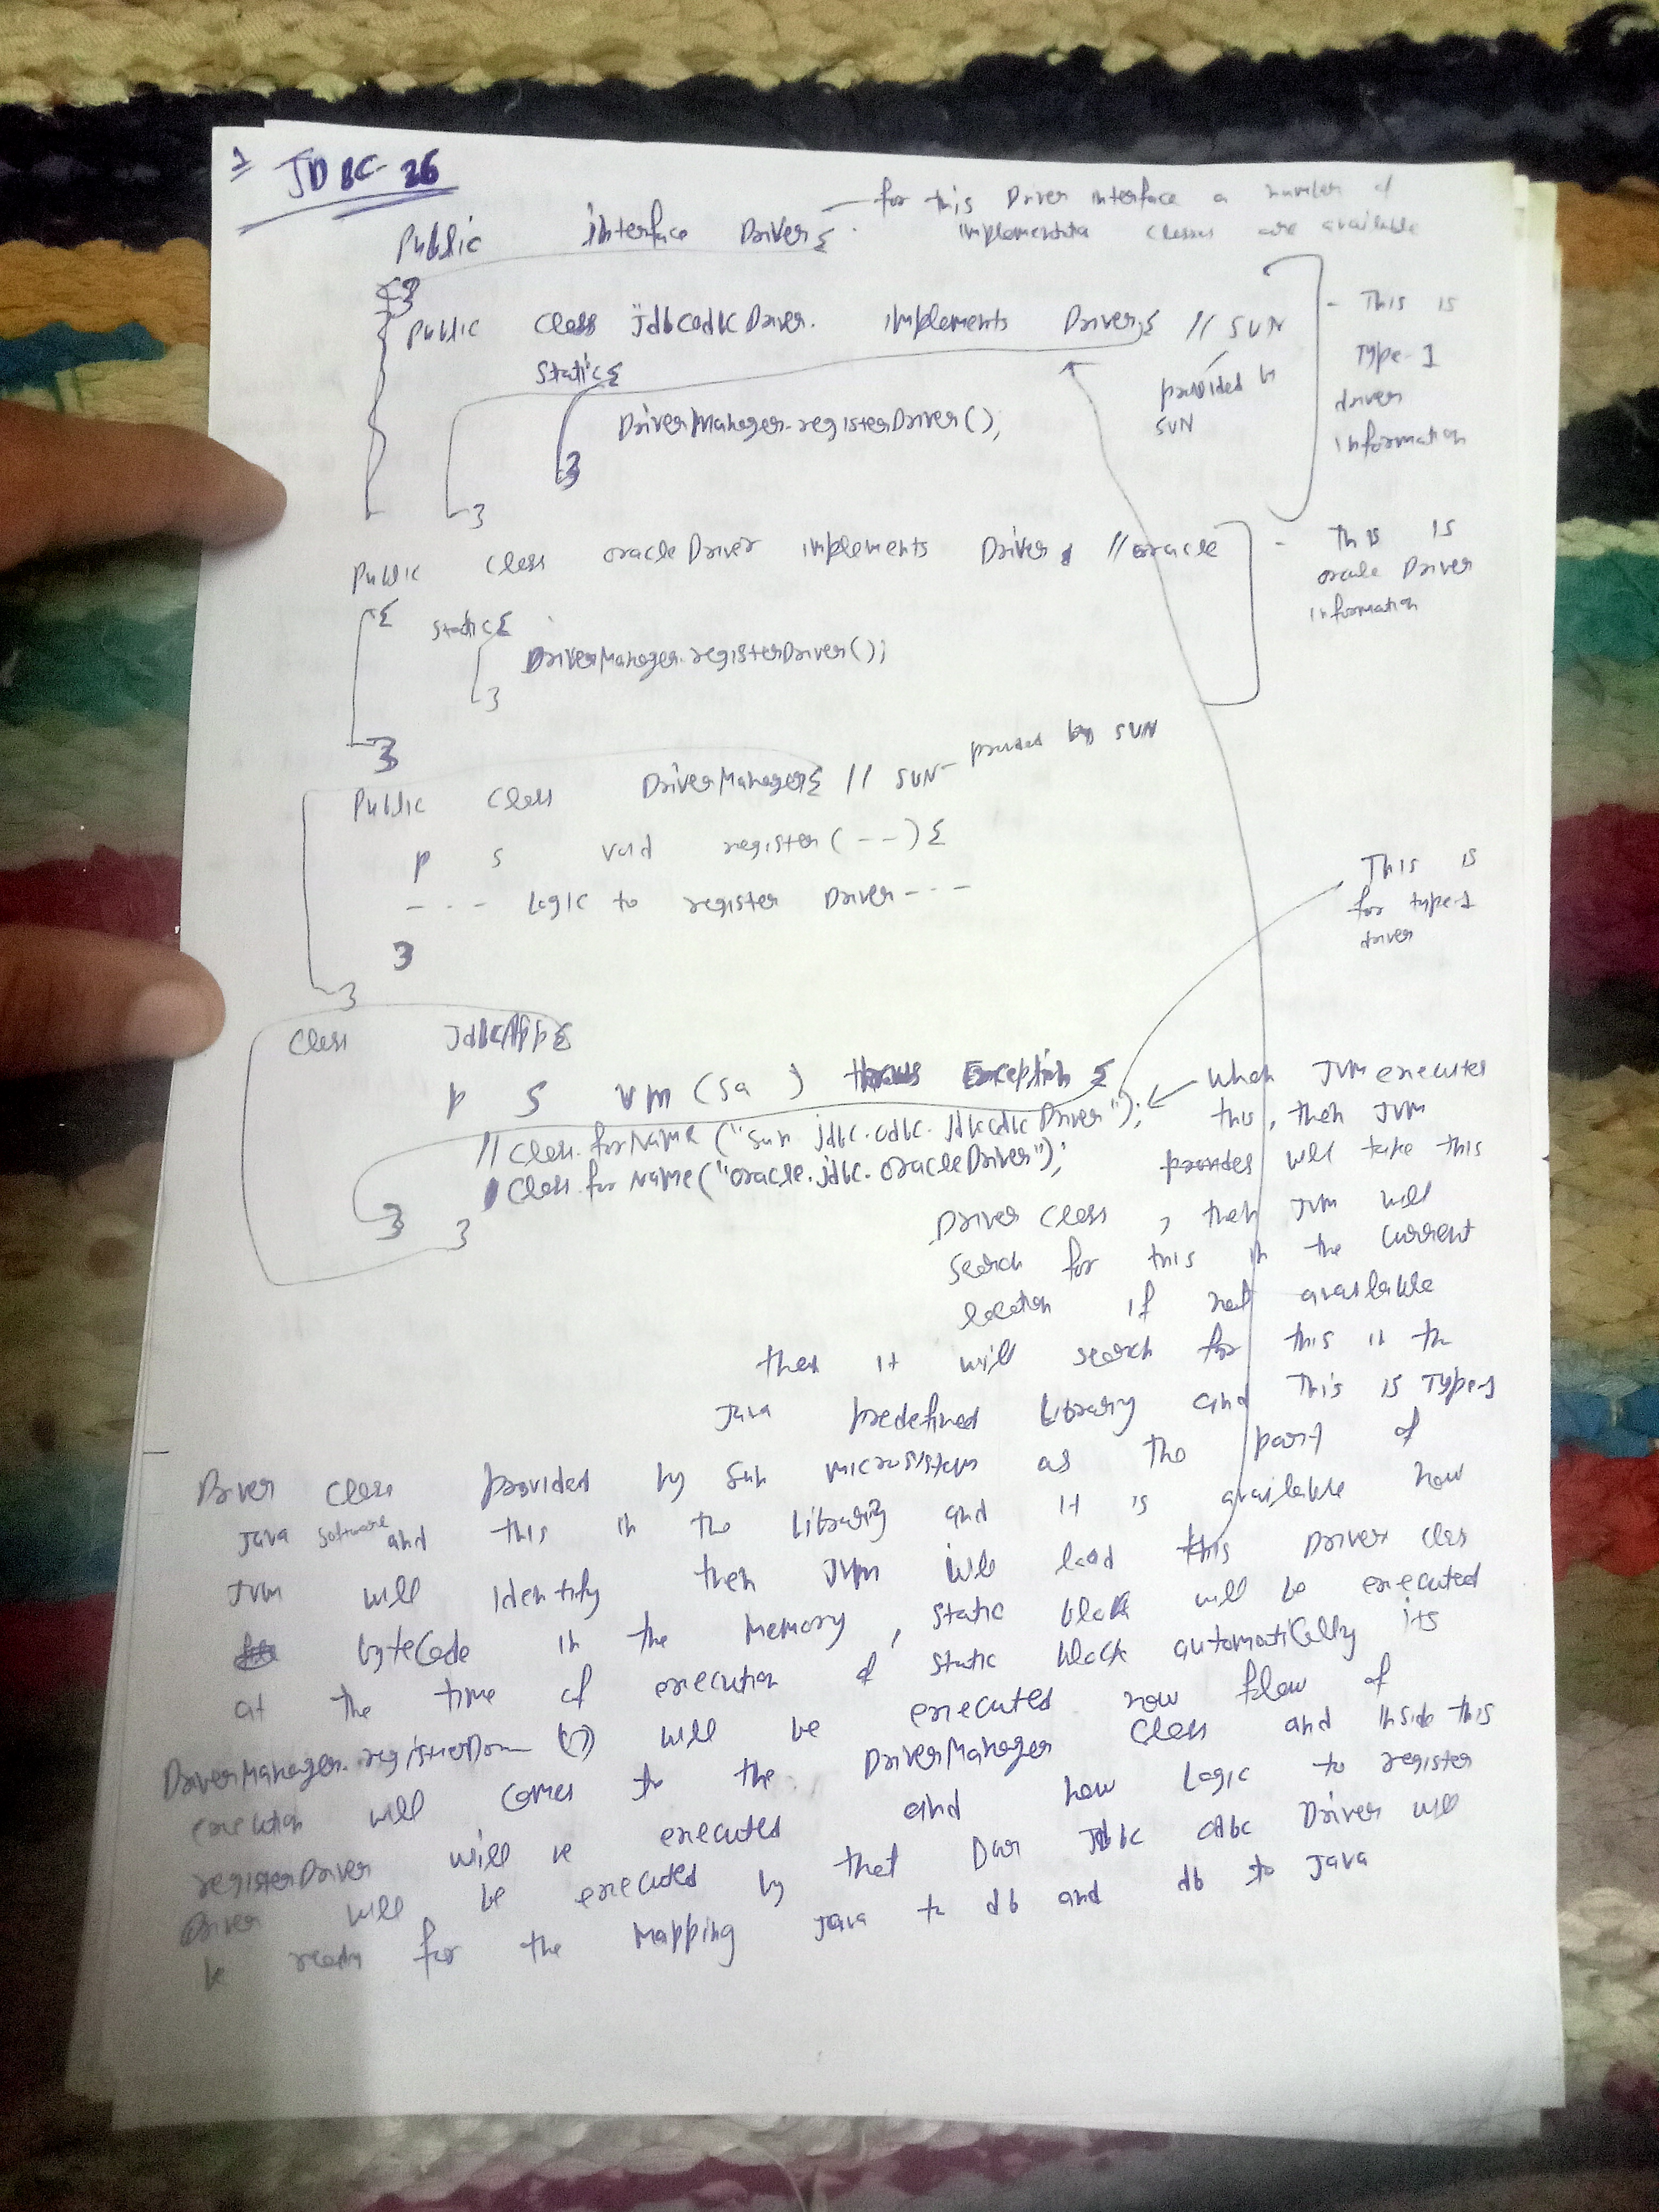 1 JDBC-26
Public interface Driver{ - for this Driver interface a number of
implementation classes are available
}
Public Class JdbcOdbcDriver implements Driver{ // SUN
provided by
SUN
- This is
Type-1
driver
information
Static{
DriverManager.registerDriver();
}
}
Public Class oracleDriver implements Driver //oracle
- This is
oracle Driver
information
{
Static{
DriverManager.registerDriver();
}
}
Public Class DriverManager{ // SUN - provided by SUN
P S void register(--){
--- Logic to register Driver ---
}
}
This is
for type-1
driver
Class JdbcApp{
P S vm (sa ) throws Exception {
// Class.forName ("sun.jdbc.odbc.JdbcOdbcDriver");
Class.forName("oracle.jdbc.oracleDriver");
}
}
When JVM executes
this, then JVM
will take this
Driver Class, then JVM will
Search for this in the Current
location if not available
then it will search for this in the
Java predefined Library and This is Type-1
Driver Class provided by Sun microsystem as the part of
Java software and this in the Library and it is available now
JVM will identify then JVM will load this Driver Clas
byteCode in the Memory, Static block will be executed
at the time of execution of static block automatically its
DriverManager. () will be executed now flow of
execution will comes to the DriverManager Class and inside this
registerDriver will be executed and now Logic to register
Driver will be executed by that Our Jdbc odbc Driver will
be ready for the mapping Java to db and db to Java